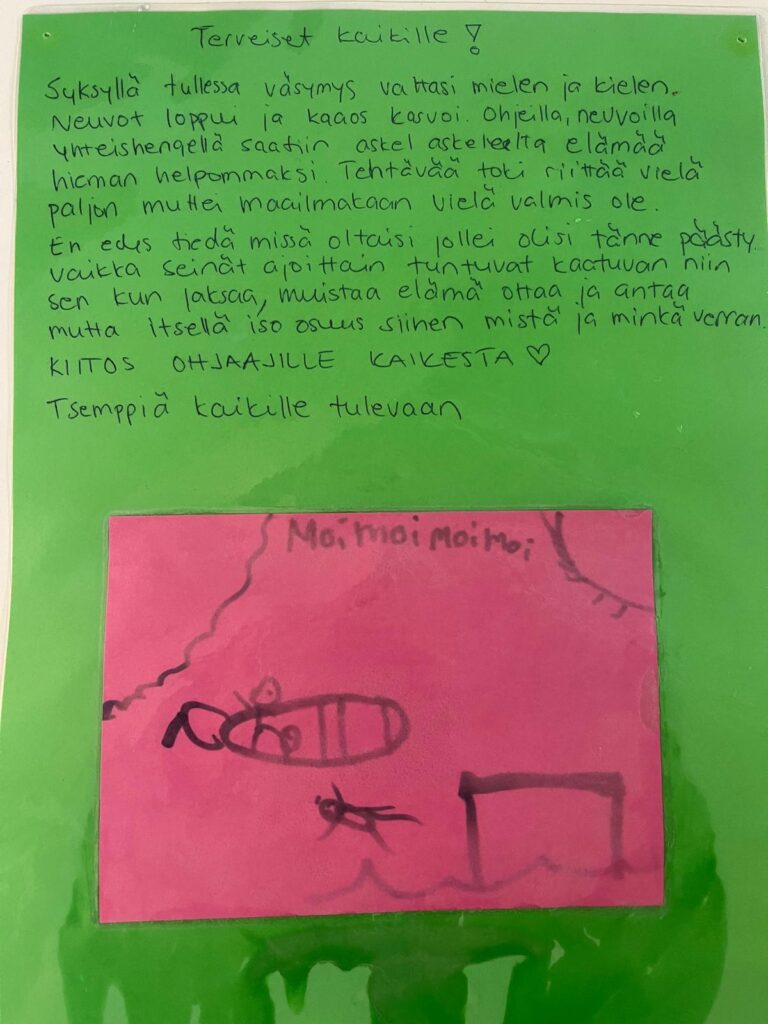 Terveiset kaikille !
Syksyllä tullessa väsymys valtasi mielen ja kielen.
Neuvot loppui ja kaaos kasvoi. Ohjeilla, neuvoilla
yhteishengellä saatiin askel askeleelta elämää
hieman helpommaksi. Tehtävää toki riittää vielä
paljon muttei maailmakaan vielä valmis ole.
En edes tiedä missä oltaisi jollei olisi tänne päästy.
vaikka seinät ajoittain tuntuvat kaatuvan niin
sen kun jaksaa, muistaa elämä ottaa ja antaa
mutta itsellä iso osuus siihen mistä ja minkä verran.
KIITOS OHJAAJILLE KAIKESTA ♡
Tsemppiä kaikille tulevaan
Moi moi moi moi